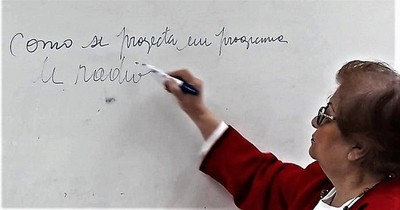 Como se proyecta un programa
de radio